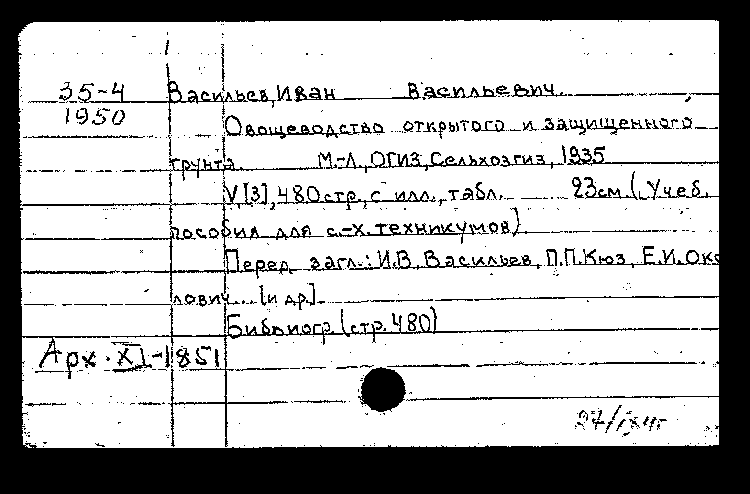 35-4 Васильев, Иван Васильевич.
1950
Овощеводство открытого и защищенного
грунта. М.-Л., ОГИЗ, Сельхозгиз, 1935
V, [3], 480 стр., с илл., табл. 23 см. (Учеб.
пособия для с.-х. техникумов).
Перед загл.: И.В. Васильев, П.П. Кюз, Е.И. Око
лович... [и др.].
Библиогр. (стр. 480)
Арх. XI-1851